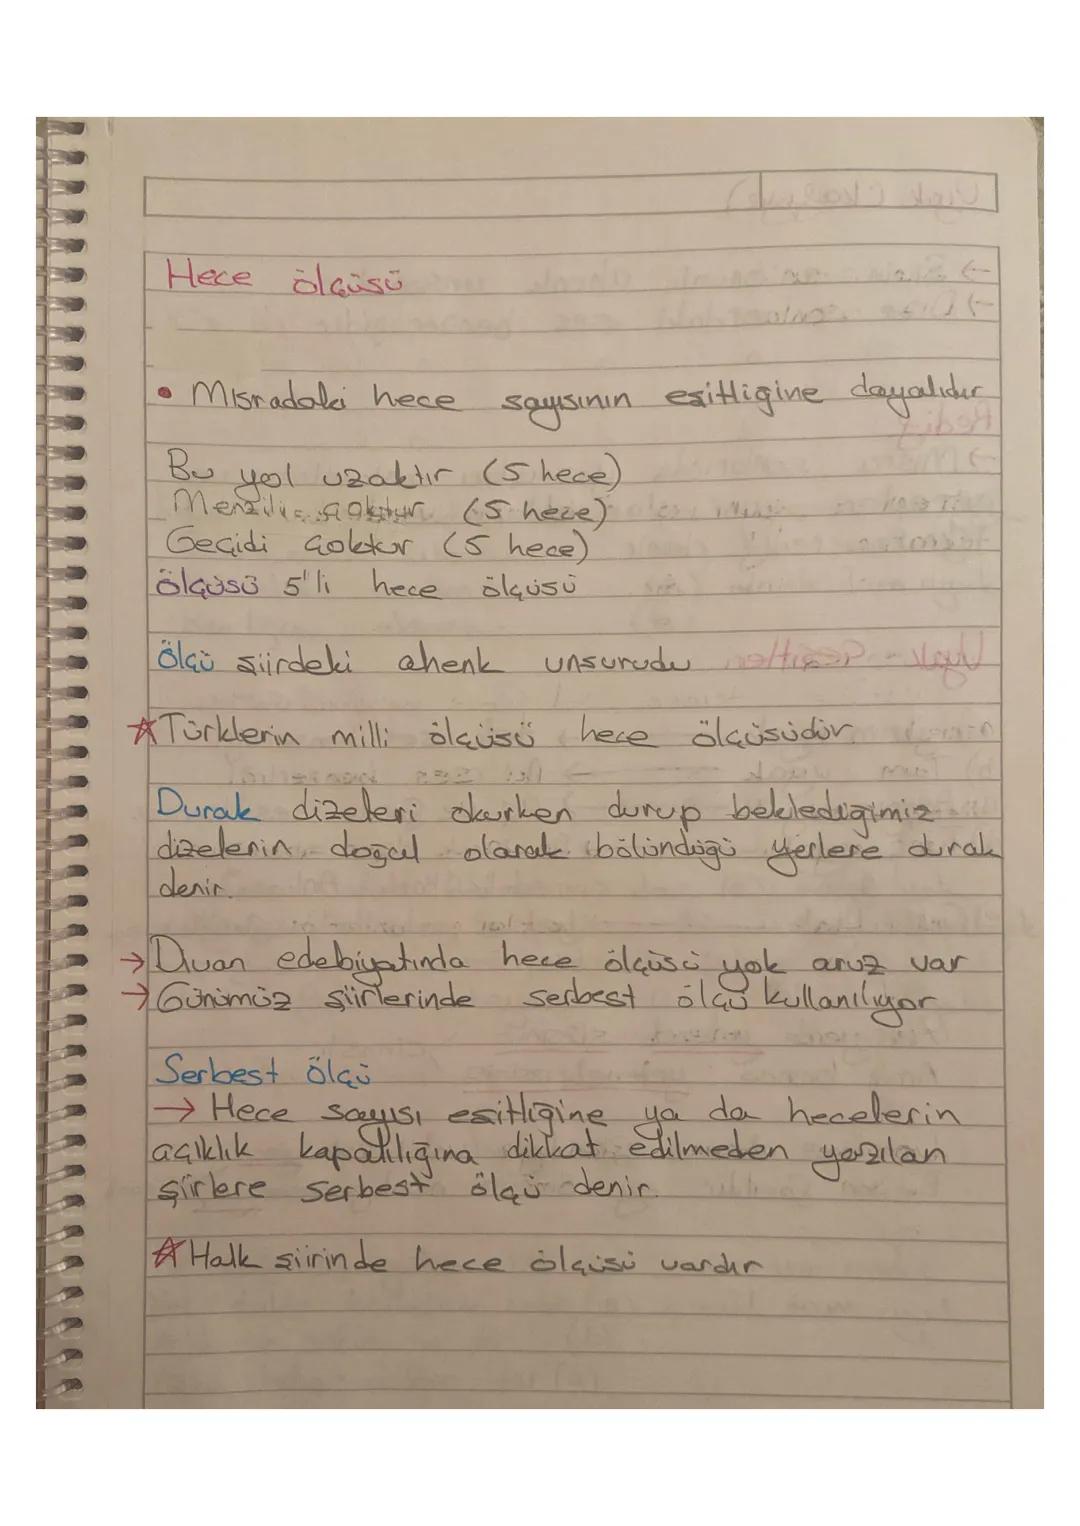 Hece ölçüsü
• Mısradaki hece sayısının eşitliğine dayalıdır
Bu yol uzaktır (5 hece)
Menzili çoktur (5 hece)
Geçidi çoktur (5 hece)
ölçüsü 5'li hece ölçüsü
Ölçü şiirdeki ahenk unsurudu
☆ Türklerin milli ölçüsü hece ölçüsüdür.
Durak dizeleri okurken durup beklediğimiz
dizelerin doğal olarak bölündüğü yerlere durak
denir.
→ Divan edebiyatında hece ölçüsü yok aruz var
→ Günümüz şiirlerinde serbest ölçü kullanılıyor
Serbest Ölçü
→ Hece sayısı eşitliğine ya da hecelerin
açıklık kapalılığına dikkat edilmeden yazılan
şiirlere serbest ölçü denir.
☆ Halk şiirinde hece ölçüsü vardır